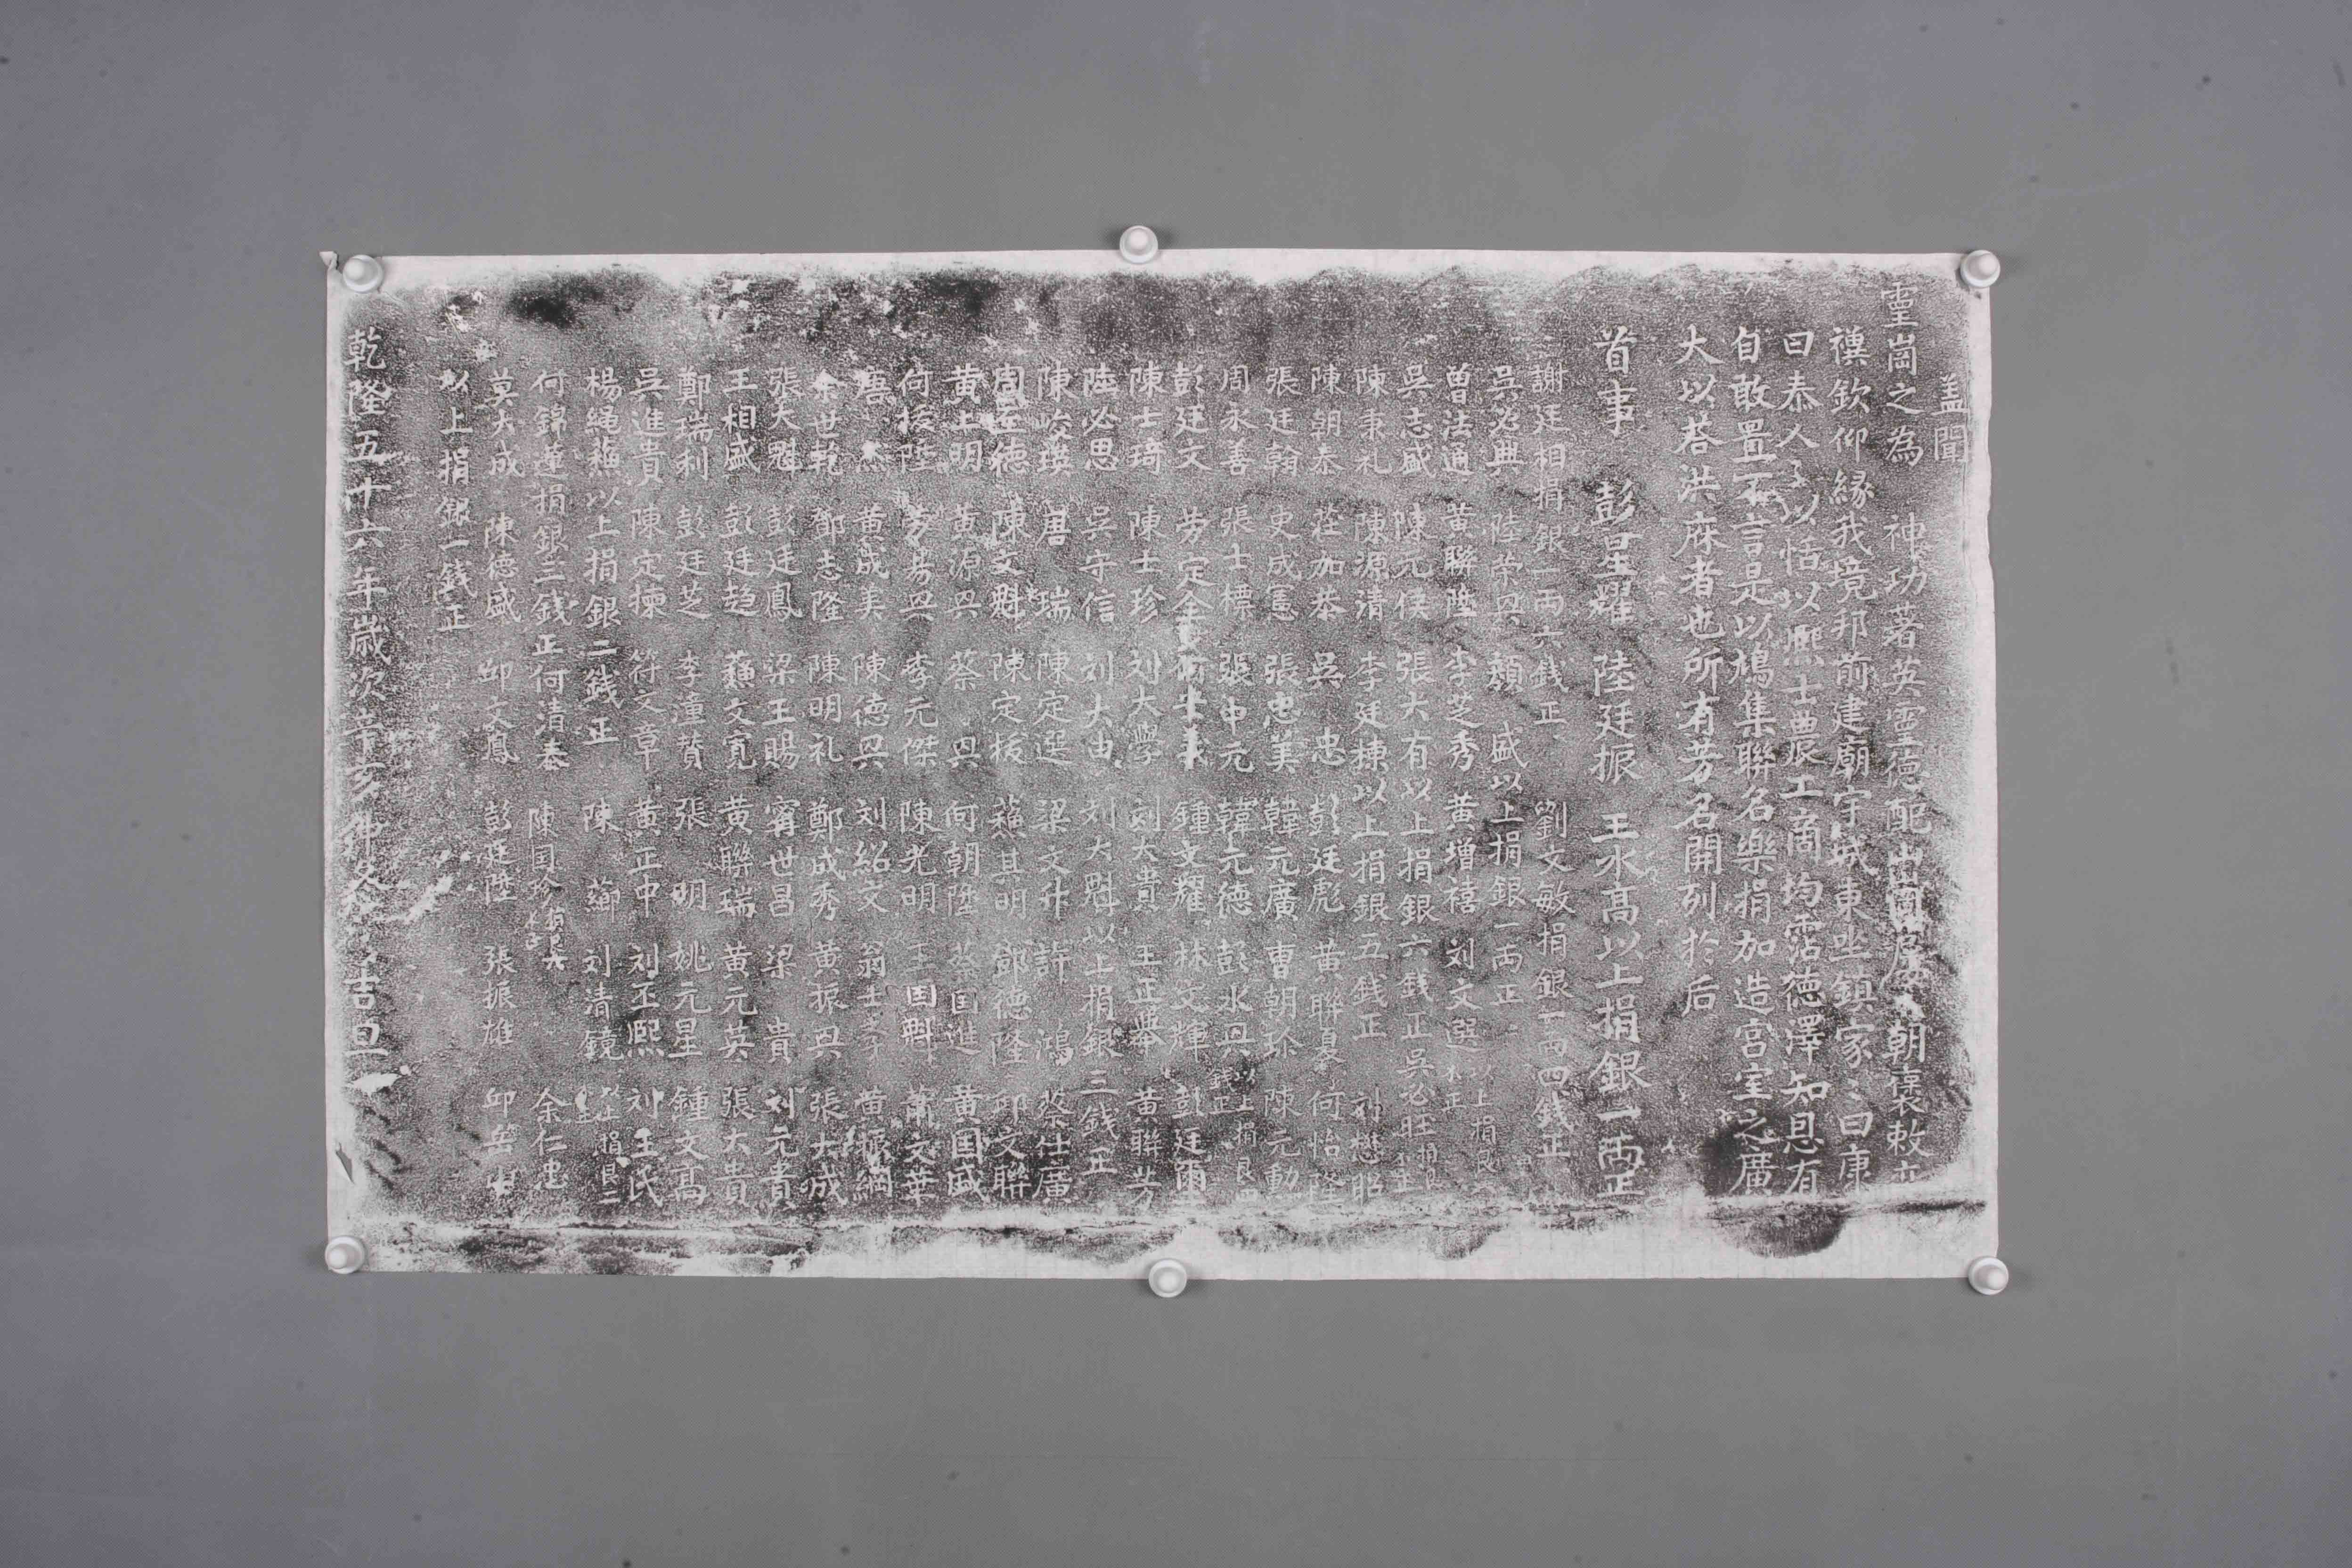 盖聞
靈崗之為 神功著英靈德配 朝褒敕
禩欽仰緣我境邦前建廟宇城東坐鎮家〻曰康
曰泰人〻以恬以熙士農工商均霑德澤知恩有
自敢置不言是以鳩集聯名樂捐加造宮室之廣
大以荅洪庥者也所有芳名開列於后
首事 彭星耀 陸廷振 王永高以上捐銀一両正
謝廷相捐銀二両六錢正 劉文敏捐銀一両四錢正
吳必興 陸荣興 顏 盛以上捐銀一両正
曾法通 黄聯陞 李芝秀 黄增禧 刘文選
吳志盛 陳元侯 張大有以上捐銀六錢正吳必旺
陳秉礼 陳源清 李廷棟以上捐銀五錢正
陳朝泰 加恭 吳 忠 彭廷彪 黄聯 何怡陞
張廷翰 史成憲 張忠美 韓元廣 曹朝珍 陳元勳
周永善 張士標 張中元 韓元德 彭永興
彭廷文 劳定金 鍾文耀 林文輝 彭廷爾
陳士琦 陳士珍 刘大學 刘大貴 王正舉 黄聯芳
陸必思 吳守信 刘大由 刘大魁以上捐銀三錢正
陳峻璞 唐 瑞 陳定選 梁文升 許 鴻 蔡仕廣
陳文魁 陳定拔 蘓其明 鄧德隆 邱文聯
黄上明 黄源興 蔡 興 何朝陞 蔡国進 黄国盛
何授陞 劳易興 李元傑 陳光明 王国斛 蕭文葉
黄成美 陳德興 刘紹文 翁士芝 黄振綱
世乾 鄧志隆 陳明礼 鄭成秀 黄振興 張大成
張大魁 彭廷鳳 梁王賜 甯世昌 梁 貴 刘元貴
王相盛 彭廷超 蘓文寬 黄聯瑞 黄元英 張大貴
鄭瑞利 彭廷芝 李潼贊 張 明 姚元星 鍾文高
吳進貴 陳定揀 符文章 黄正中 刘丕熙 刘王氏
楊绳蘓以上捐銀二錢正 陳 薌 刘清鏡
何錦蓮捐銀三錢正何清泰 陳国珍 余仁忠
莫大成 陳德盛 邱文鳳 彭廷陞 張振雄 邱岳
以上捐銀一錢正
乾隆五十六年歲次辛亥仲冬 吉旦